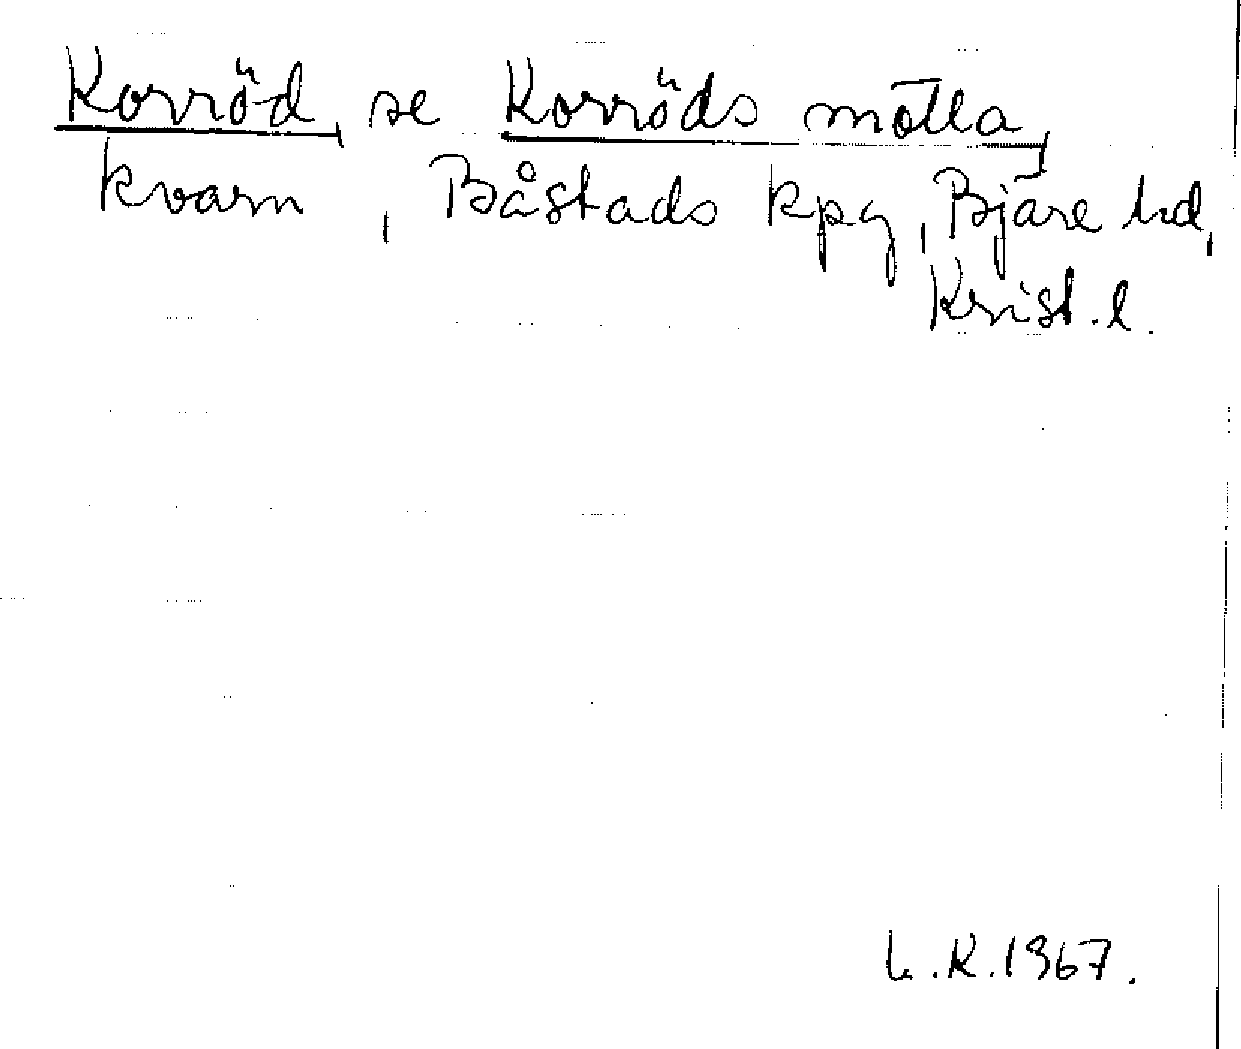 Korröd, se Korröds mölla,
kvarn, Båstads kpg, Bjäre hd,
Krist. l.
L.K. 1967.